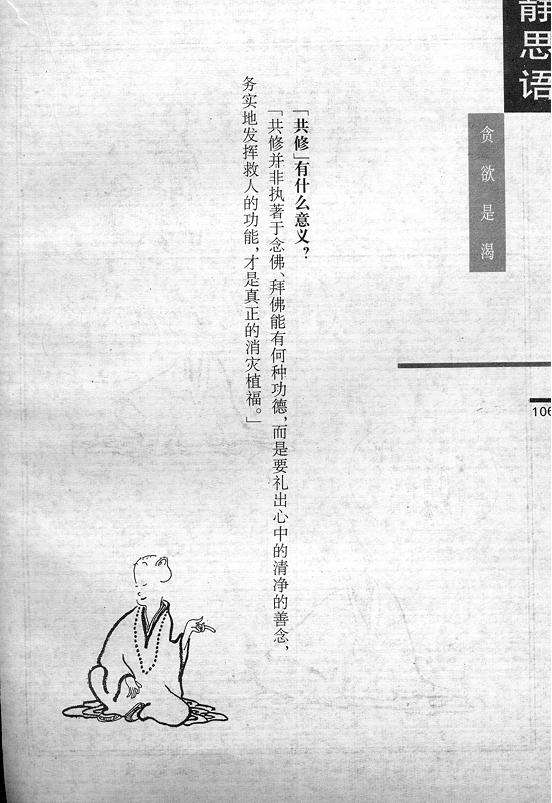 静思语
贪欲是渴
106
「共修」有什么意义？
「共修并非执著于念佛、拜佛能有何种功德，而是要礼出心中的清净的善念，
务实地发挥救人的功能，才是真正的消灾植福。」